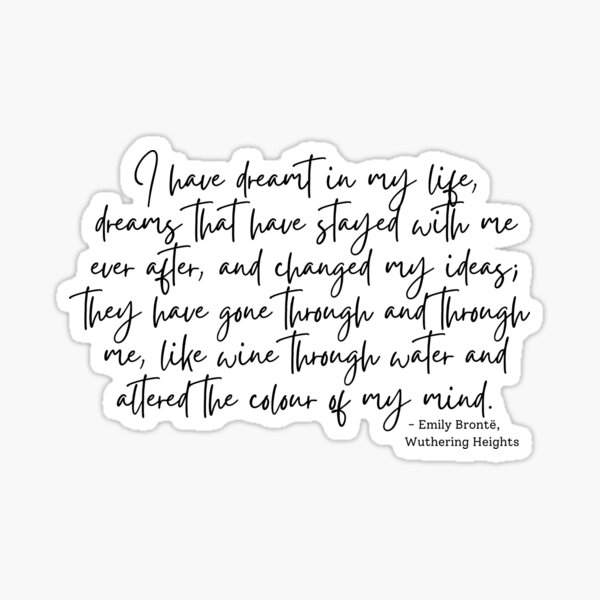 I have dreamt in my life,
dreams that have stayed with me
ever after, and changed my ideas;
they have gone through and through
me, like wine through water and
altered the colour of my mind.
- Emily Brontë,
Wuthering Heights